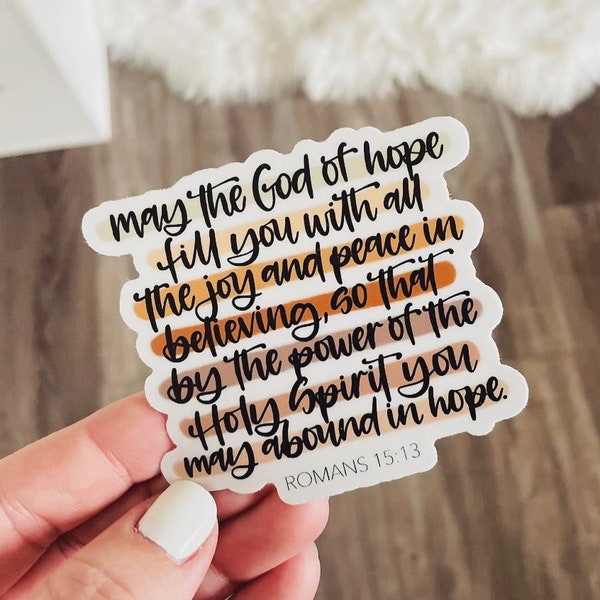 may the God of hope
fill you with all
the joy and peace in
believing, so that
by the power of the
Holy Spirit you
may abound in hope.
ROMANS 15:13